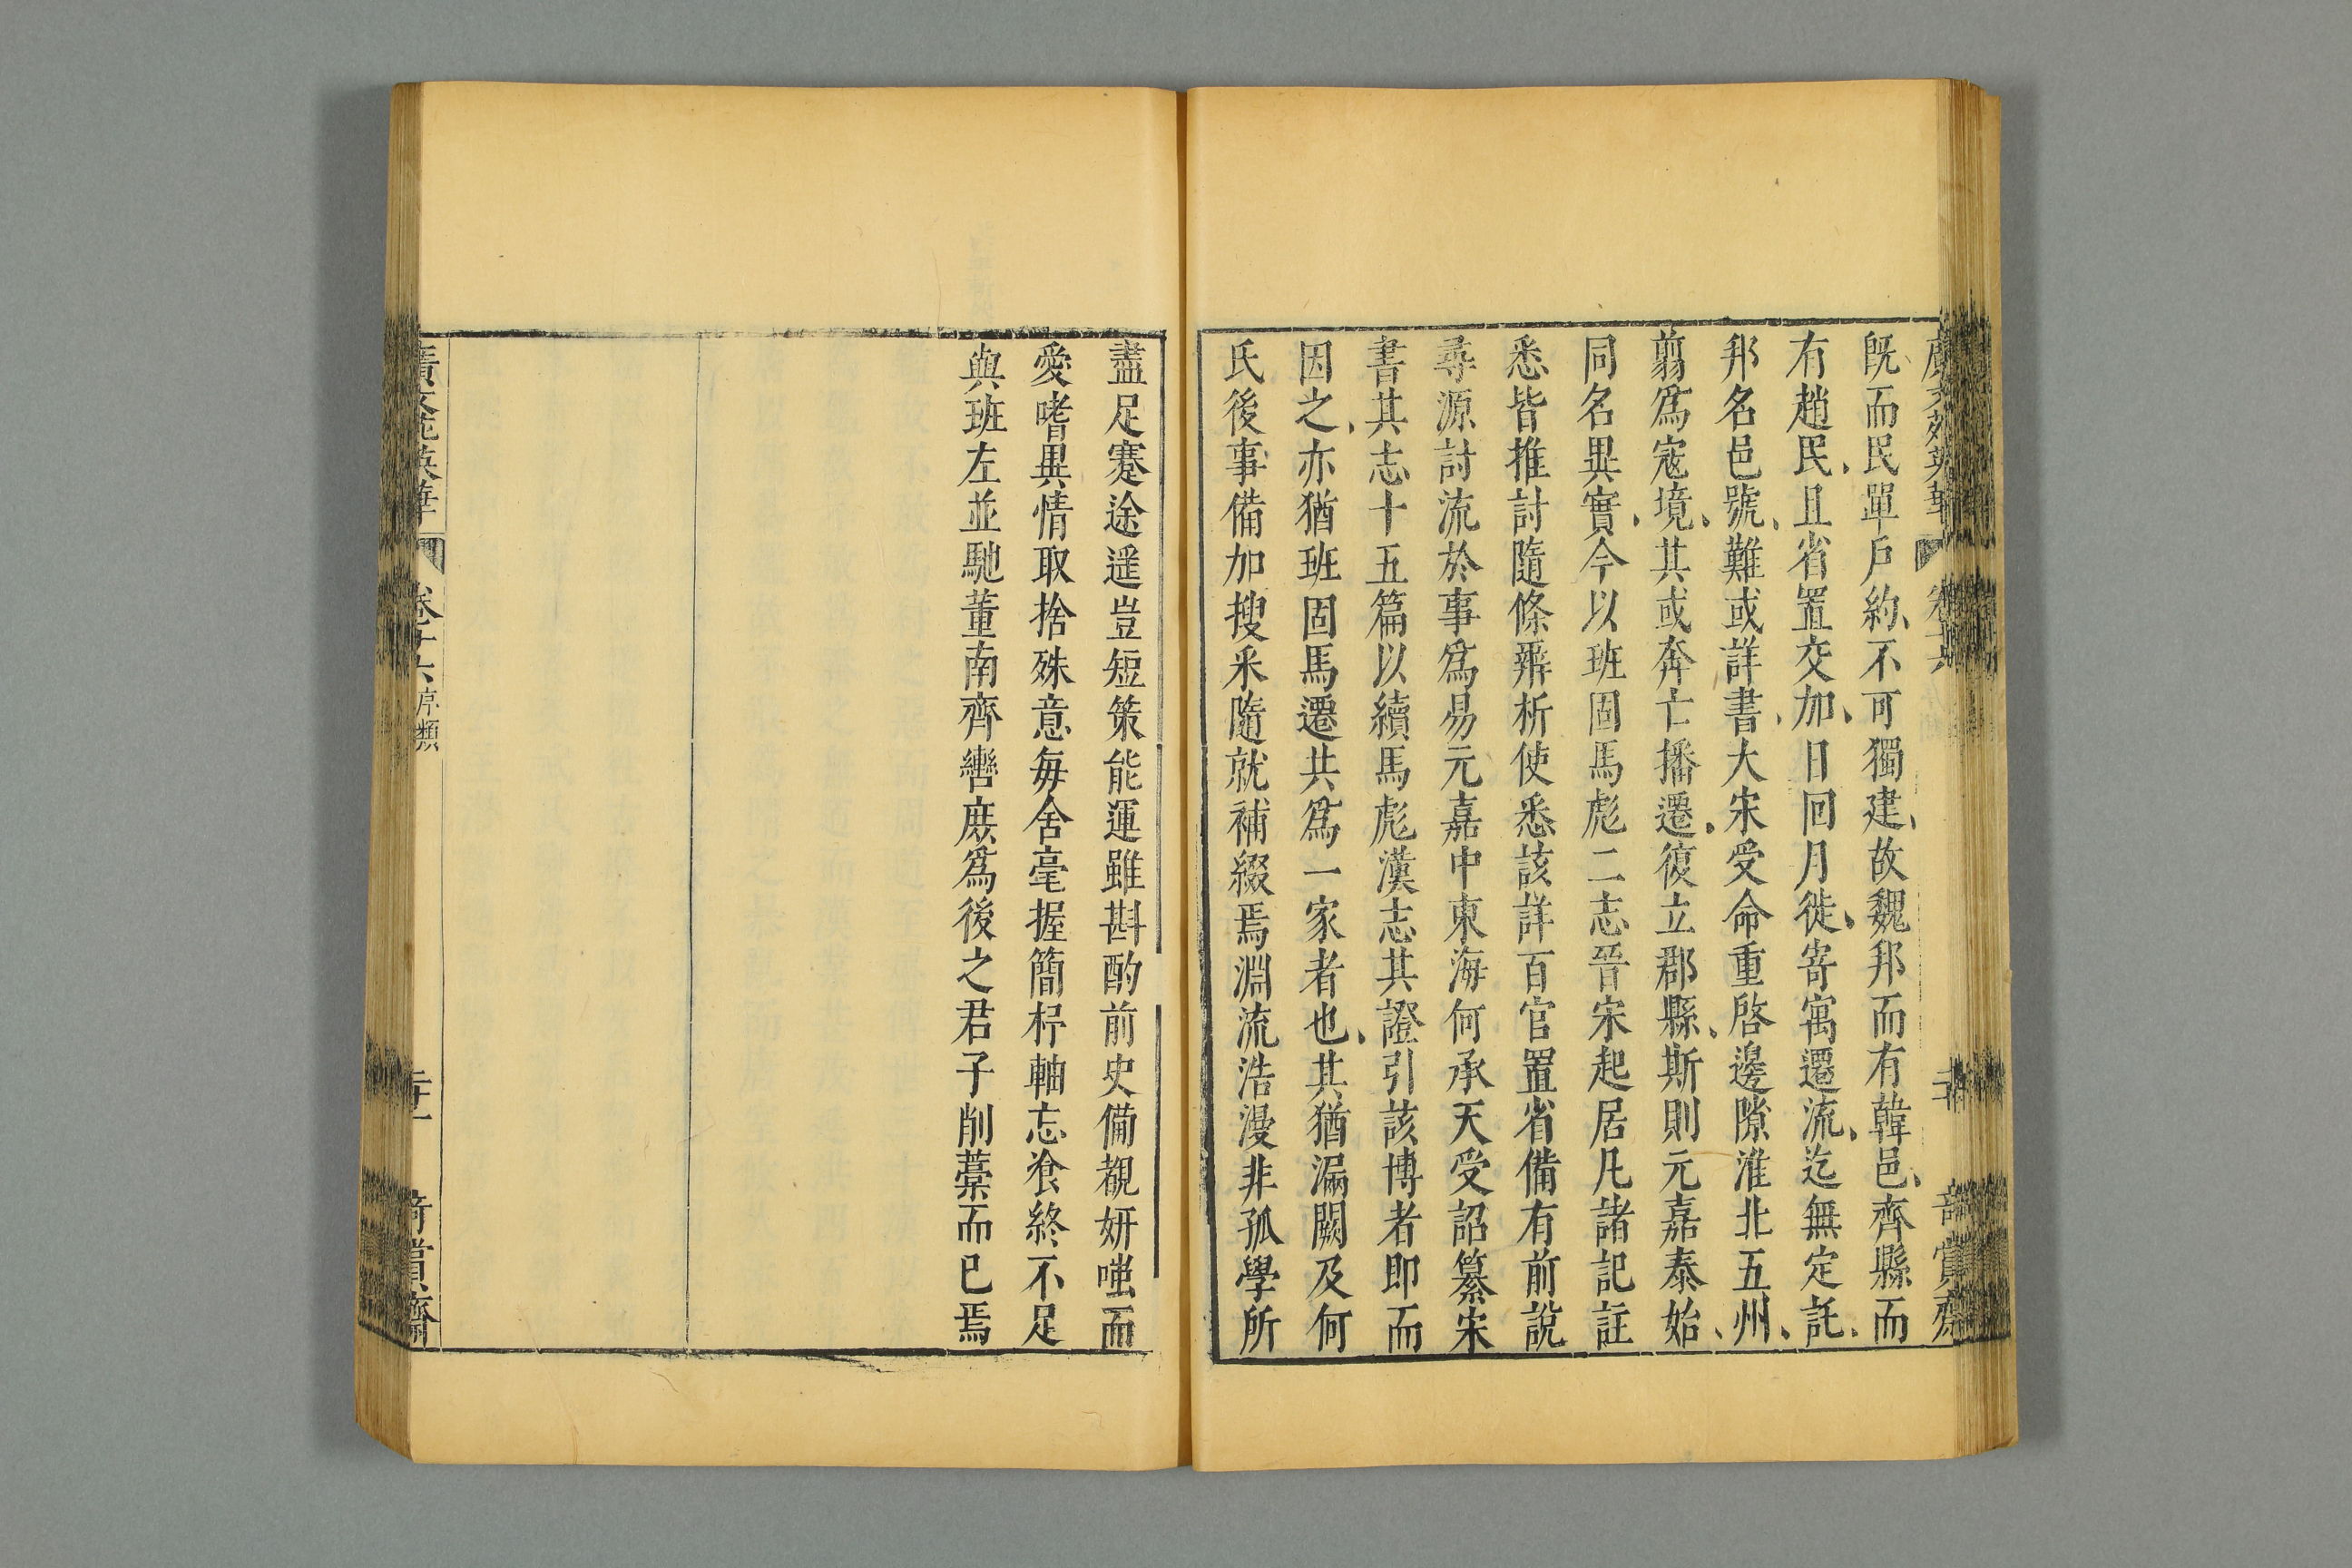 廣文苑英華 卷十六 二十 奇賞齋
既而民單戶約、不可獨建、故魏邦而有韓邑、齊縣而
有趙民、且省置交加、日回月徙、寄寓遷流、迄無定託、
邦名邑號、難或詳書、大宋受命重啓邊隙淮北五州、
翦爲寇境、其或奔亡播遷、復立郡縣、斯則元嘉泰始、
同名異實、今以班固馬彪二志晉宋起居凡諸記註
悉皆推討隨條辨析使悉該詳百官置省備有前說
尋源討流於事爲易元嘉中東海何承天受詔纂宋
書其志十五篇以續馬彪漢志其證引該博者即而
因之、亦猶班固馬遷共爲一家者也、其猶漏闕及何
氏後事備加搜采隨就補綴焉淵流浩漫非孤學所
盡足蹇途遥豈短策能運雖斟酌前史備覩妍嗤而
愛嗜異情取捨殊意每舍毫握簡杼軸忘飡終不足
與班左並馳董南齊轡庶爲後之君子削藁而已焉
廣文苑英華 卷十六 序類 二十一 奇賞齋